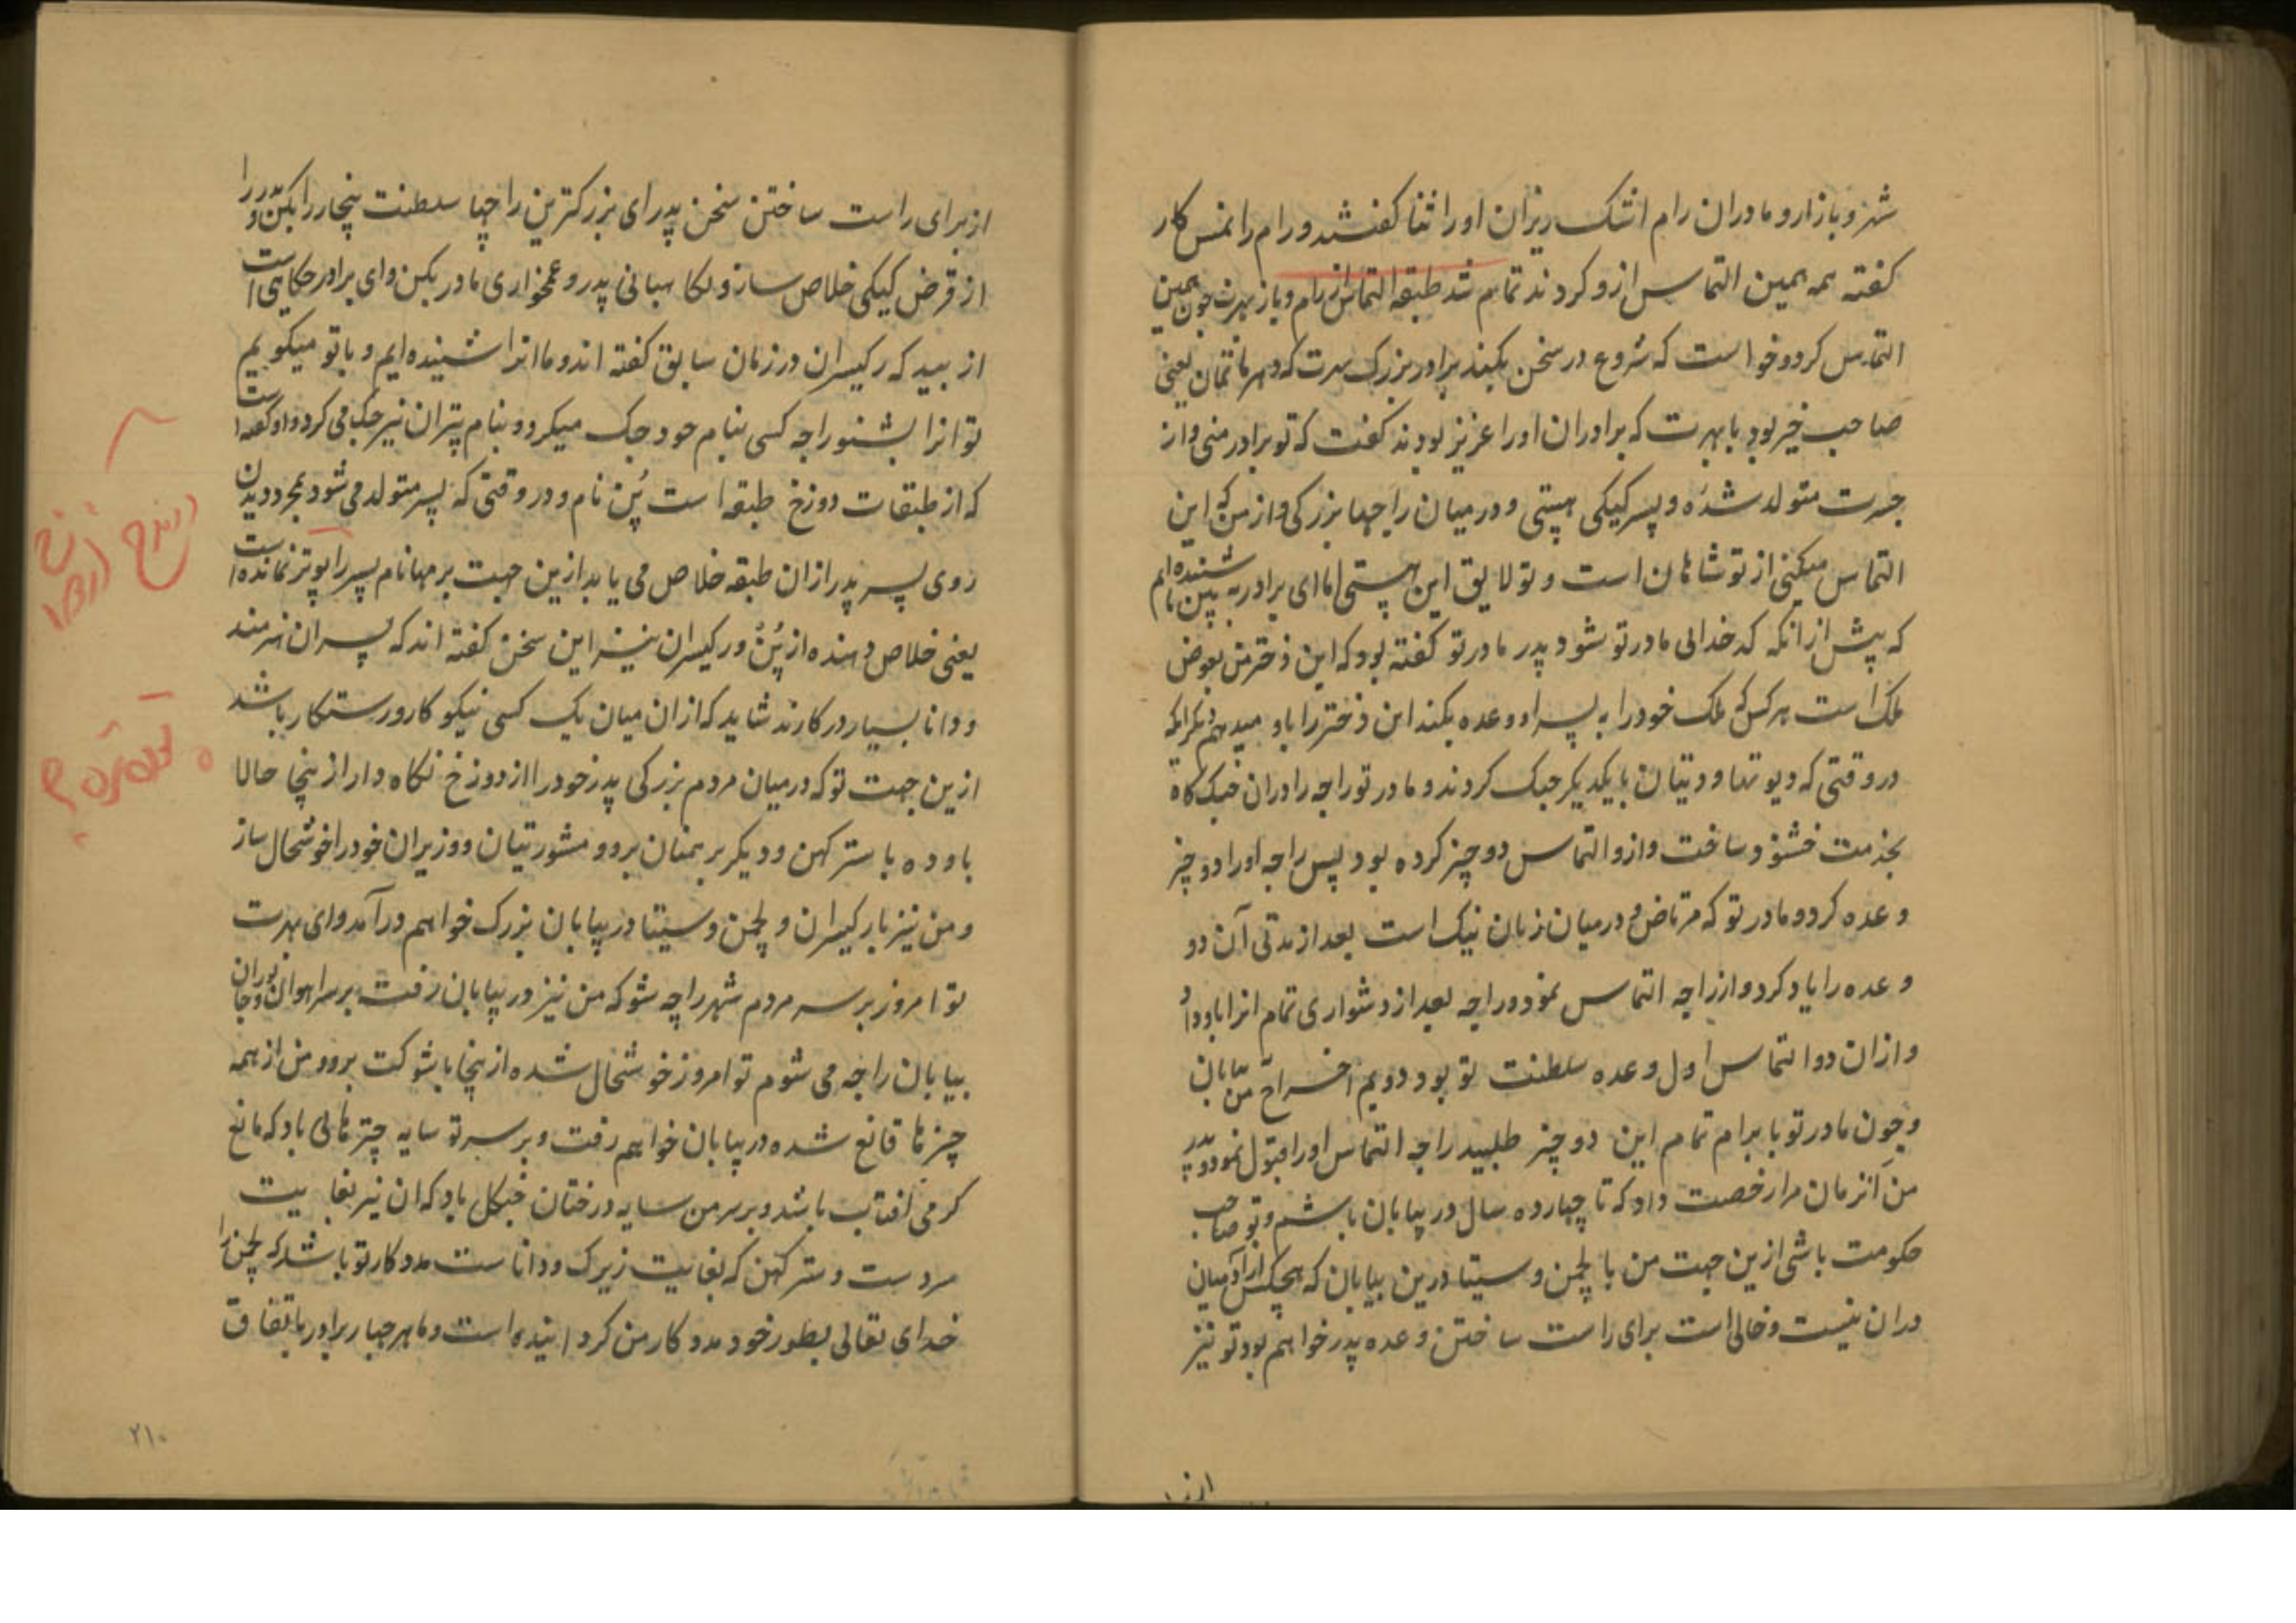 شهر و بازار و مادران رام اشک ریزان او را ثنا گفتند و رام را نمس کار
گفته همه همین التماس ازو کردند تمام شد طبقه التماس از رام و باز بهرت چون همین
التماس کرد و خواست که شروع در سخن بکند برادر بزرگ بهرت که در یعنی
صاحب خیر بود با بهرت که برادران او را عزیز بودند گفت که تو برادر منی و از
جسرت متولد شده و پسر کیکی هستی و در میان راجها بزرکی و از من که این
التماس میکنی از تو شایان است و تو لایق این هستی اما ای برادر به بین ما شنیده ایم
که پیش از انکه کدخدائی مادر تو شود پدر مادر تو گفته بود که این دختر من بعوض
ملک است هر کس که ملک خود را به پسر او وعده بکند این دختر را باو میدهم دیگر انکه
در وقتی که دیوتها و دیتیان با یکدیکر جنک کردند و مادر تو راجه را دران جنک کاه
بخدمت خشنود ساخت و ازو التماس دو چیز کرده بود پس راجه او را دو چیز
وعده کرد و مادر تو که مرتاض و درمیان زنان نیک است بعد از مدتی آن دو
وعده را یاد کرد و از راجه التماس نمود و راجه بعد از دشواری تمام انرا باو داد
و ازان دو التماس اول وعده سلطنت تو بود دویم اخراج من به بیابان
و چون مادر تو با برام تمام این دو چیز طلبید راجه التماس او را قبول نمود و پدر
من انزمان مرا رخصت داد که تا چهارده سال در بیابان باشم و تو صاحب
حکومت باشی ازین جهت من با لچمن و سیتا درین بیابان که هیچکس از آدمیان
دران نیست و خالی است برای راست ساختن وعده پدر خواهم بود تو نیز
از برا
از برای راست ساختن سخن پدر ای بزرکترین راجها سلطنت پنجا را بکن و پدر را
از قرض کیکی خلاص ساز و نکاهبانی پدر و غمخواری مادر بکن و ای برادر حکایتی است
از بید که رکیسران در زمان سابق گفته اند و ما انرا شنیده ایم و با تو میکویم
تو انرا بشنو راجه کسی بنام خود جک میکرد و بنام پتران نیز جک می کرد و او گفته است
که از طبقات دوزخ طبقه است پُن نام و در وقتی که پسر متولد می شود بمجرد دیدن
روی پسر پدر ازان طبقه خلاص می یابد ازین جهت برمها نام پسر را پوتر نمانده است
یعنی خلاص دهنده از پُن و رکیسران نیز این سخن گفته اند که پسران هنرمند
و دانا بسیار در کارند شاید که ازان میان یک کسی نیکو کار و رستکار باشد
ازین جهت تو که درمیان مردم بزرکی پدر خود را از دوزخ نکاه دار از پنجا حالا
باوده با سترکهن و دیکر برهمنان برو و مشورتیان و وزیران خود را خوشحال ساز
و من نیز با رکیسران و لچمن و سیتا در بیابان بزرک خواهم درآمد و ای بهرت
تو امروز بر سر مردم شهر راجه شو که من نیز در بیابان رفته بر سر اهوان و جانوران
بیابان راجه می شوم تو امروز خوشحال شده از پنجا با شوکت برو و من از همه
چیزها قانع شده در بیابان خواهم رفت و بر سر تو سایه چترهائی باد که مانع
گرمی افتاب باشد و بر سر من سایه درختان جنکل باد که ان نیز بغایت
سرد ست و سترکهن که بغایت زیرک و دانا ست مددکار تو باشد که لچمن را
خدای تعالی بطور خود مددکار من کردانیده است و ما هر چهار برادر باتفاق
۲۱۰